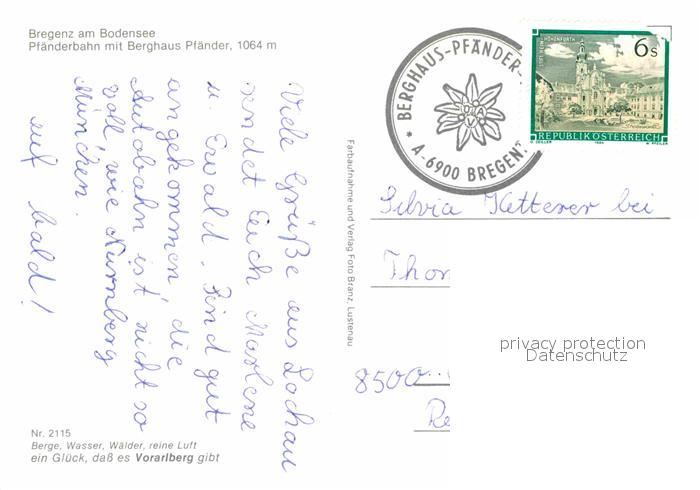 Bregenz am Bodensee
Pfänderbahn mit Berghaus Pfänder, 1064 m
Viele Grüße aus Lochau
sendet Euch Marlene
u. Ewald. Sind gut
angekommen, die
Autobahn ist nicht so
voll, wie Nürnberg
München.
auf bald!
Nr. 2115
Berge, Wasser, Wälder, reine Luft
ein Glück, daß es Vorarlberg gibt
Farbaufnahme und Verlag Foto Branz, Lustenau
* BERGHAUS-PFÄNDER-
A-6900 BREGENZ
ÖAV
6s
STIFT REIN-HOHENFURTH
REPUBLIK ÖSTERREICH
Silvia Ketterer bei
Thon
8500
Re
privacy protection
Datenschutz